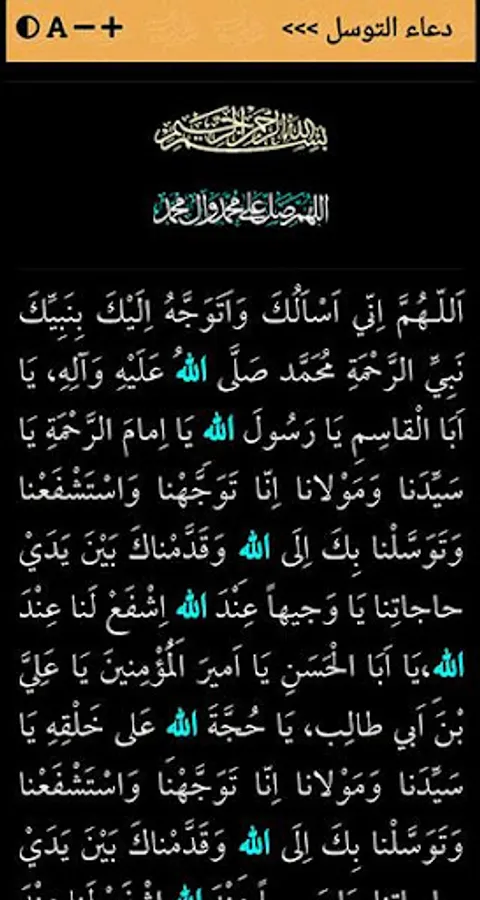 دعاء التوسل >>>
A − +
بسم الله الرحمن الرحيم
اللهم صل على محمد وآل محمد
اَللّـهُمَّ اِنّي اَسْاَلُكَ وَاَتَوَجَّهُ اِلَيْكَ بِنَبِيِّكَ
نَبِيِّ الرَّحْمَةِ مُحَمَّد صَلَّى اللهُ عَلَيْهِ وَآلِهِ، يَا
اَبَا الْقاسِمِ يَا رَسُولَ الله يَا اِمامَ الرَّحْمَةِ يَا
سَيِّدَنا وَمَوْلانا اِنّا تَوَجَّهْنا وَاسْتَشْفَعْنا
وَتَوَسَّلْنا بِكَ اِلَى الله وَقَدَّمْناكَ بَيْنَ يَدَيْ
حاجاتِنا يَا وَجيهاً عِنْدَ الله اِشْفَعْ لَنا عِنْدَ
الله،يَا اَبَا الْحَسَنِ يَا اَميرَ الْمُؤْمِنينَ يَا عَلِيَّ
بْنَ اَبي طالِب، يَا حُجَّةَ الله عَلى خَلْقِهِ يَا
سَيِّدَنا وَمَوْلانا اِنّا تَوَجَّهْنَا وَاسْتَشْفَعْنا
وَتَوَسَّلْنا بِكَ اِلَى الله وَقَدَّمْناكَ بَيْنَ يَدَيْ